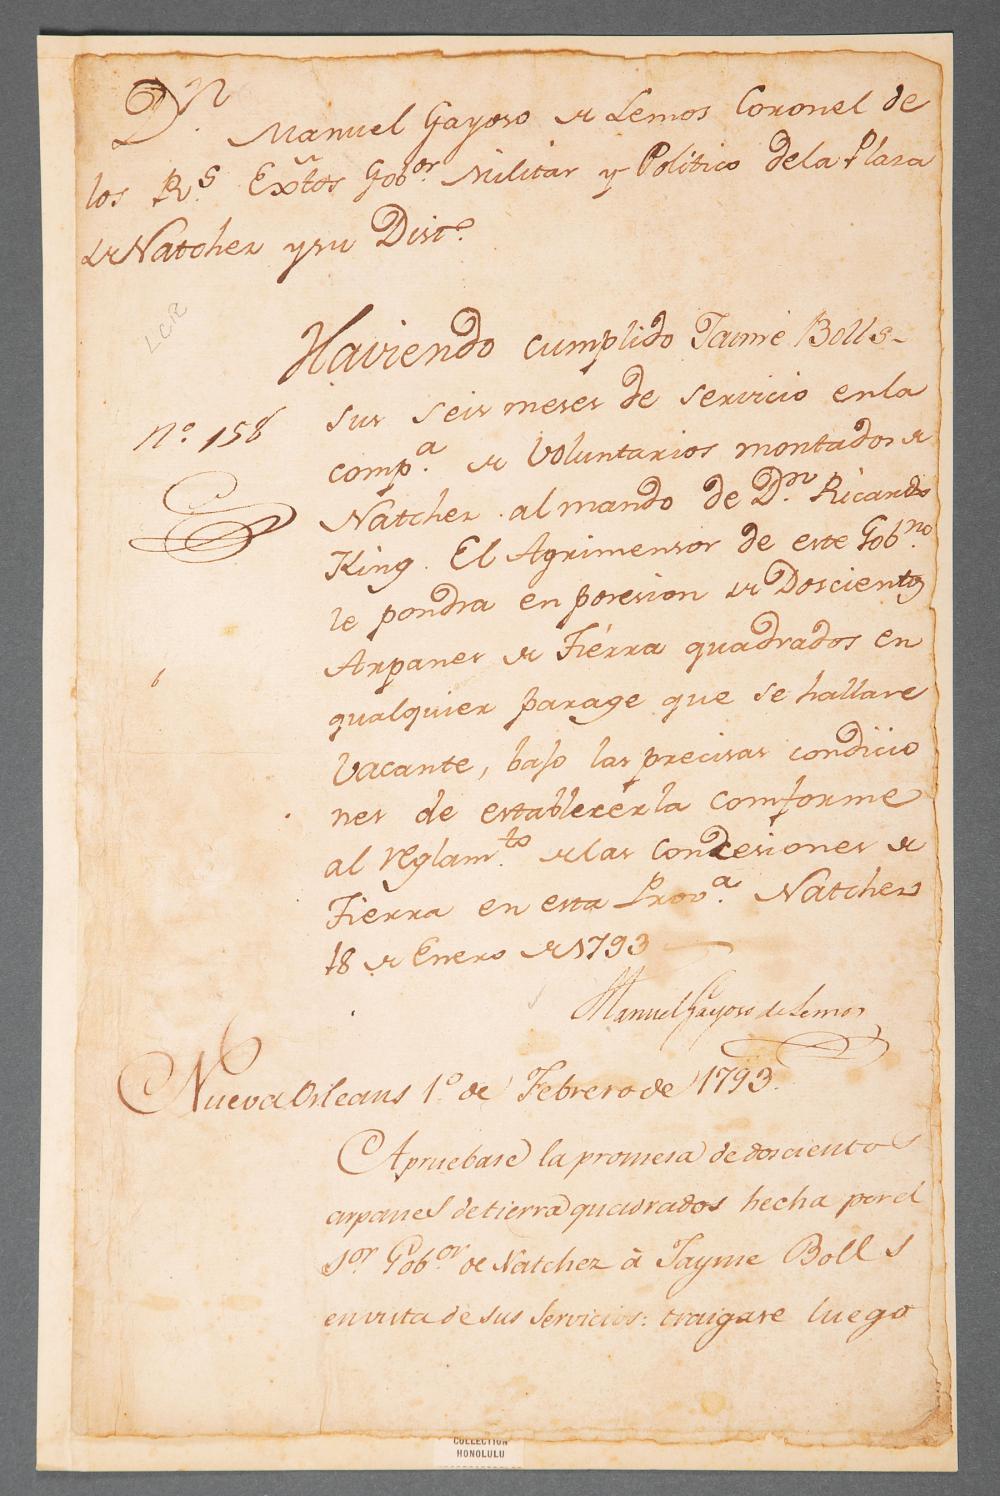 Dn. Manuel Gayoso de Lemos Coronel de
los Rs. Exñtos Gobor Militar y Politico dela Plasa
de Natchez y su Disto.
LCR
Haviendo cumplido Jaime Bolls-
sus seis meses de servicio en la
No. 158
compa. de Voluntarios montados de
Natchez al mando de Dn. Ricardo
King. El Agrimensor de este Gobno.
le pondra en posesion de Doscientos
Arpanes de Tierra quadrados en
qualquier parage que se hallare
Vacante, bajo las precisas condicio
nes de establecerla comforme
al reglamto. de las Concesiones de
Tierra en esta Prova. Natchez
18 de Enero de 1793
Manuel Gayoso de Lemos
Nueva Orleans 1o. de Febrero de 1793.
Apruebase la promesa de doscientos
arpanes de tierra quadrados hecha por el
Sor. Gobor. de Natchez à Jayme Bolls
en vista de sus servicios: traigase luego
COLLECTION
HONOLULU